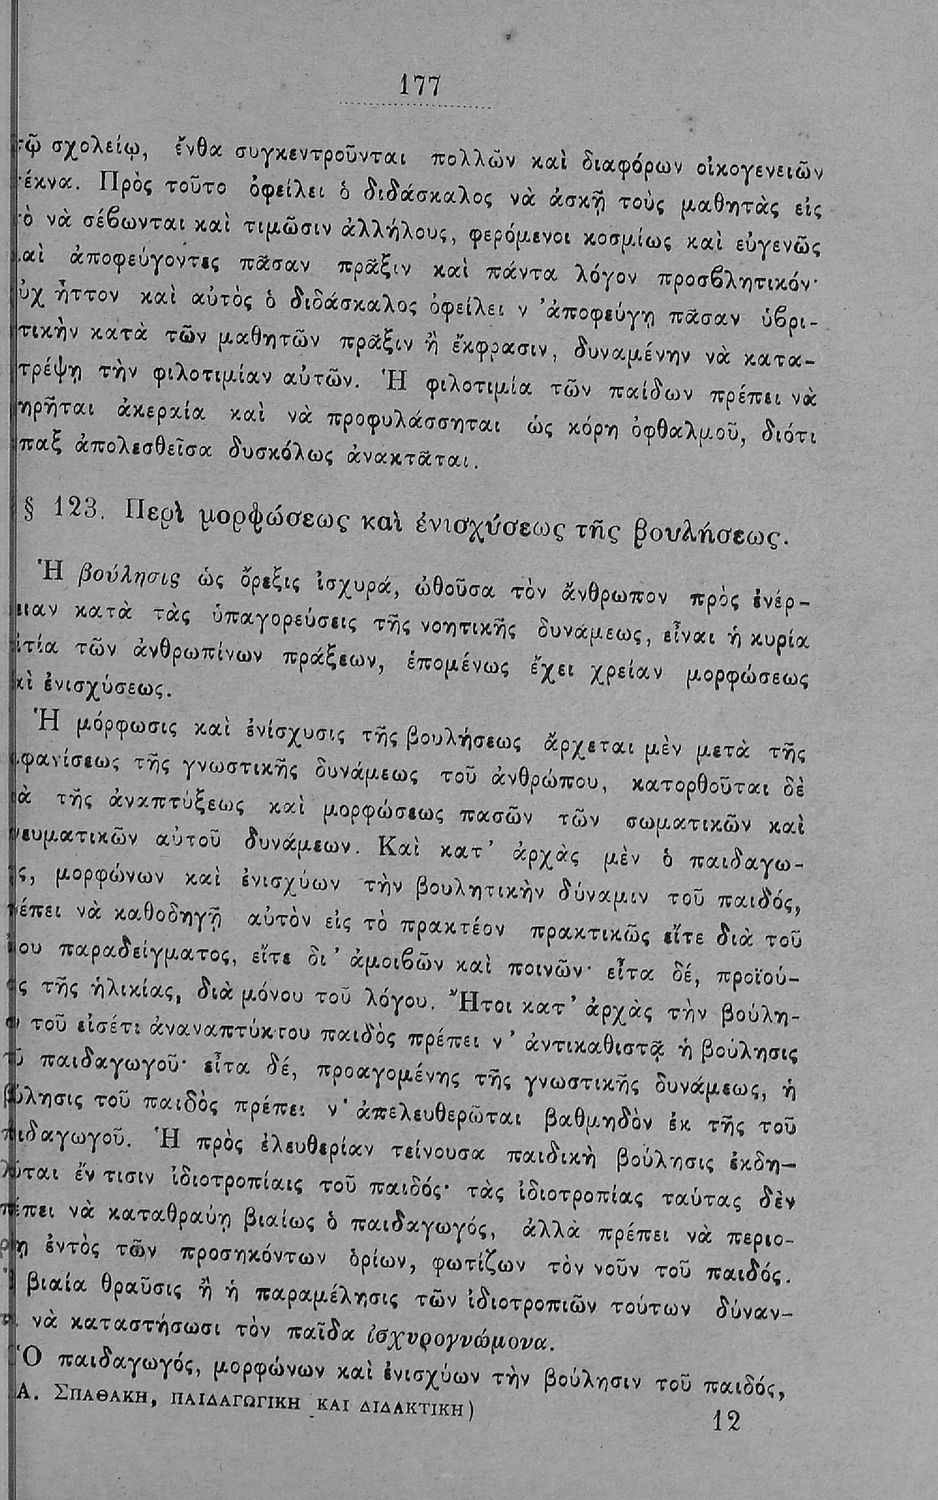 177
τῷ σχολείῳ, ἔνθα συγκεντροῦνται πολλῶν καὶ διαφόρων οἰκογενειῶν
τέκνα. Πρὸς τοῦτο ὀφείλει ὁ διδάσκαλος νὰ ἀσκῇ τοὺς μαθητὰς εἰς
τὸ νὰ σέβωνται καὶ τιμῶσιν ἀλλήλους, φερόμενοι κοσμίως καὶ εὐγενῶς
καὶ ἀποφεύγοντες πᾶσαν πρᾶξιν καὶ πάντα λόγον προσβλητικόν·
οὐχ ἧττον καὶ αὐτὸς ὁ διδάσκαλος ὀφείλει ν᾿ ἀποφεύγῃ πᾶσαν ὑβρι-
τικὴν κατὰ τῶν μαθητῶν πρᾶξιν ἢ ἔκφρασιν, δυναμένην νὰ κατα-
τρέψῃ τὴν φιλοτιμίαν αὐτῶν. Ἡ φιλοτιμία τῶν παίδων πρέπει νὰ
τηρῆται ἀκεραία καὶ νὰ προφυλάσσηται ὡς κόρη ὀφθαλμοῦ, διότι
ἅπαξ ἀπολεσθεῖσα δυσκόλως ἀνακτᾶται.
§ 123. Περὶ μορφώσεως καὶ ἐνισχύσεως τῆς βουλήσεως.
Ἡ βούλησις ὡς ὄρεξις ἰσχυρά, ὠθοῦσα τὸν ἄνθρωπον πρὸς ἐνέρ-
γειαν κατὰ τὰς ὑπαγορεύσεις τῆς νοητικῆς δυνάμεως, εἶναι ἡ κυρία
αἰτία τῶν ἀνθρωπίνων πράξεων, ἑπομένως ἔχει χρείαν μορφώσεως
καὶ ἐνισχύσεως.
Ἡ μόρφωσις καὶ ἐνίσχυσις τῆς βουλήσεως ἄρχεται μὲν μετὰ τῆς
ἐμφανίσεως τῆς γνωστικῆς δυνάμεως τοῦ ἀνθρώπου, κατορθοῦται δὲ
διὰ τῆς ἀναπτύξεως καὶ μορφώσεως πασῶν τῶν σωματικῶν καὶ
πνευματικῶν αὐτοῦ δυνάμεων. Καὶ κατ᾿ ἀρχὰς μὲν ὁ παιδαγω-
γός, μορφώνων καὶ ἐνισχύων τὴν βουλητικὴν δύναμιν τοῦ παιδός,
πρέπει νὰ καθοδηγῇ αὐτὸν εἰς τὸ πρακτέον πρακτικῶς εἴτε διὰ τοῦ
ἰδίου παραδείγματος, εἴτε δι᾿ ἀμοιβῶν καὶ ποινῶν· εἶτα δέ, προϊού-
σης τῆς ἡλικίας, διὰ μόνου τοῦ λόγου. Ἤτοι κατ᾿ ἀρχὰς τὴν βούλη-
σιν τοῦ εἰσέτι ἀναναπτύκτου παιδὸς πρέπει ν᾿ ἀντικαθιστᾷ ἡ βούλησις
τοῦ παιδαγωγοῦ· εἶτα δέ, προαγομένης τῆς γνωστικῆς δυνάμεως, ἡ
βούλησις τοῦ παιδὸς πρέπει ν᾿ ἀπελευθερῶται βαθμηδὸν ἐκ τῆς τοῦ
παιδαγωγοῦ. Ἡ πρὸς ἐλευθερίαν τείνουσα παιδικὴ βούλησις ἐκδη-
λοῦται ἔν τισιν ἰδιοτροπίαις τοῦ παιδός· τὰς ἰδιοτροπίας ταύτας δὲν
πρέπει νὰ καταθραύῃ βιαίως ὁ παιδαγωγός, ἀλλὰ πρέπει νὰ περιο-
ρίζῃ ἐντὸς τῶν προσηκόντων ὁρίων, φωτίζων τὸν νοῦν τοῦ παιδός.
Ἡ βιαία θραῦσις ἢ ἡ παραμέλησις τῶν ἰδιοτροπιῶν τούτων δύναν-
ται νὰ καταστήσωσι τὸν παῖδα ἰσχυρογνώμονα.
Ὁ παιδαγωγός, μορφώνων καὶ ἐνισχύων τὴν βούλησιν τοῦ παιδός,
Α. ΣΠΑΘΑΚΗ, ΠΑΙΔΑΓΩΓΙΚΗ ΚΑΙ ΔΙΔΑΚΤΙΚΗ)
12